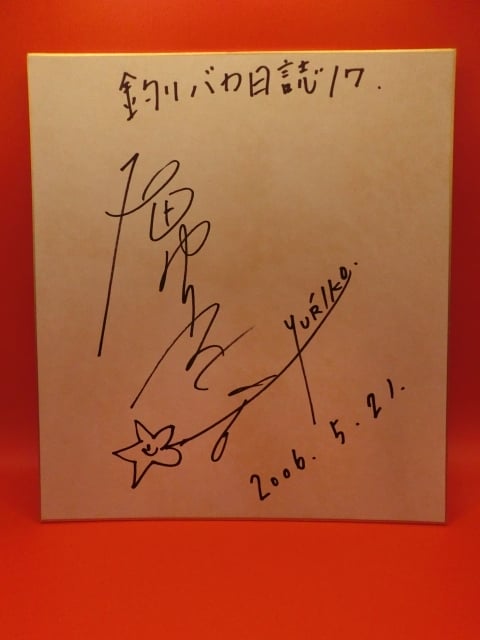 釣りバカ日誌17.
石田ゆり子
YURIKO.
2006.5.21.